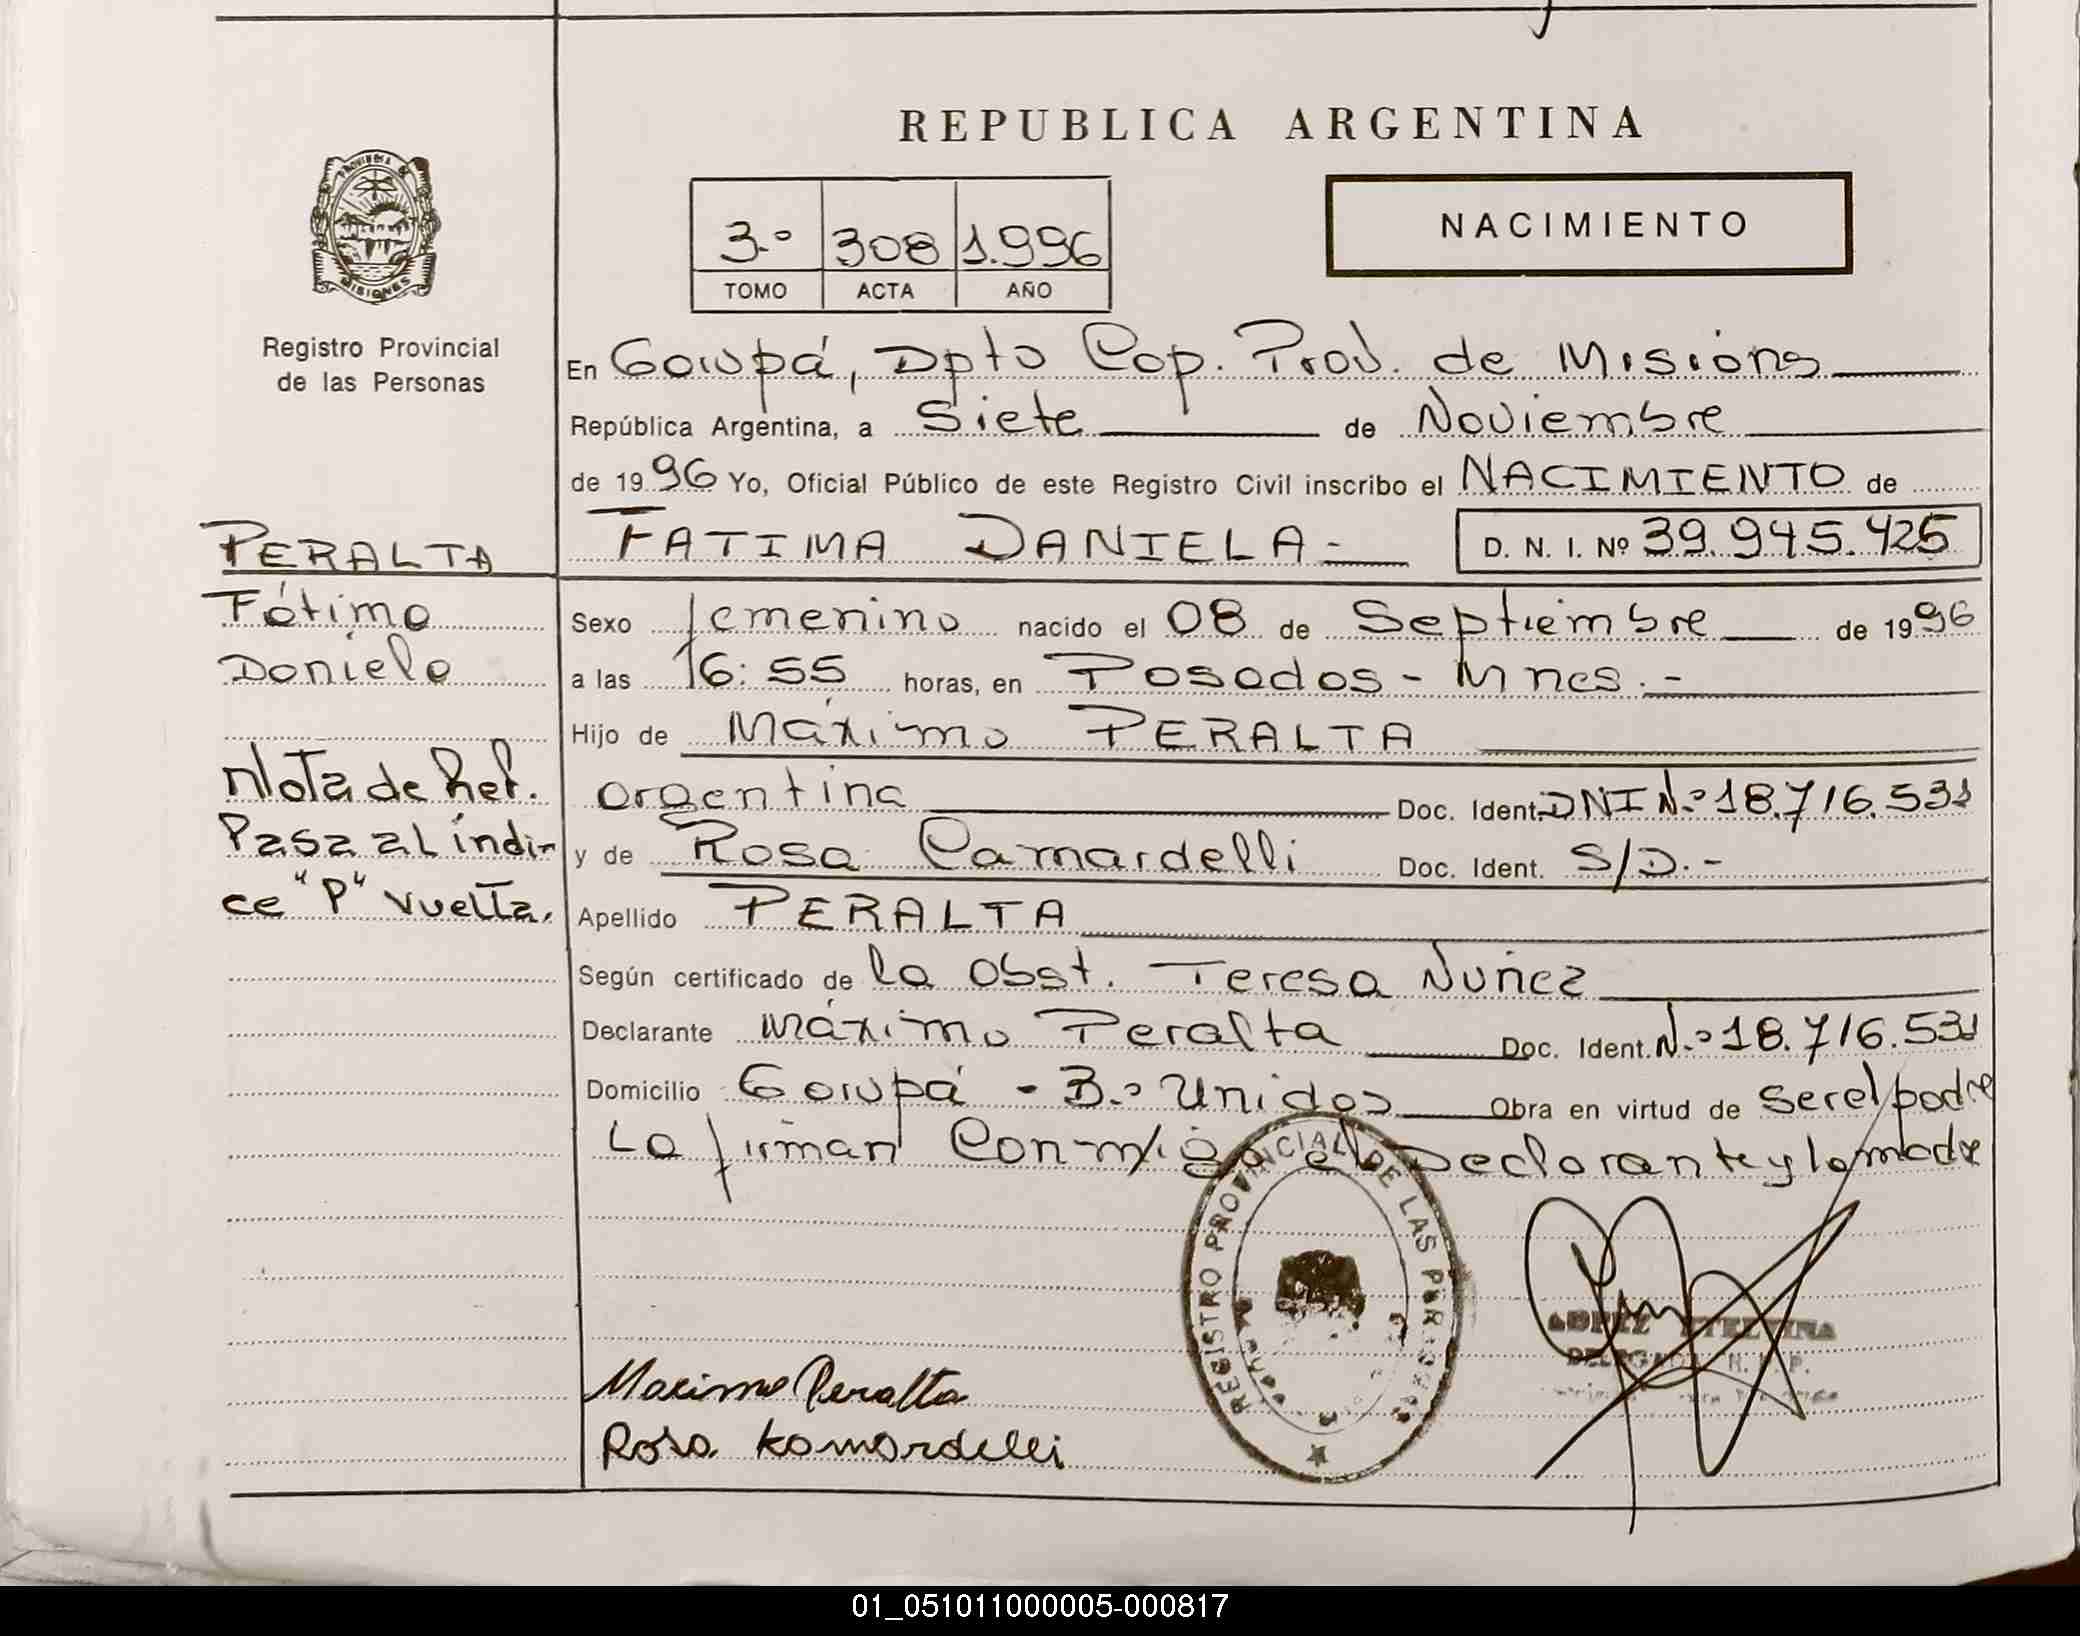 REPUBLICA ARGENTINA
NACIMIENTO
3.º 308 1.996
TOMO ACTA AÑO
PROVINCIA DE
MISIONES
Registro Provincial
de las Personas
En Garupá, Dpto Cap. Prov. de Misiones
República Argentina, a Siete de Noviembre
de 1996 Yo, Oficial Público de este Registro Civil inscribo el NACIMIENTO de
FATIMA DANIELA.- D. N. I. Nº 39.945.425
PERALTA
Fátima
Daniela
Sexo femenino nacido el 08 de Septiembre de 1996
a las 16:55 horas, en Posadas - Mnes.-
Hijo de Máximo PERALTA
argentina Doc. Ident. DNI N.º 18.716.531
y de Rosa Camardelli Doc. Ident. S/D.-
Apellido PERALTA
Nota de Ref.
Pasa al índi-
ce "P" vuelta.
Según certificado de la Obst. Teresa Nuñez
Declarante Máximo Peralta Doc. Ident. N.º 18.716.531
Domicilio Garupá - B.º Unidos Obra en virtud de ser el padre
La firman Conmigo el Declarante y la madre
REGISTRO PROVINCIAL DE LAS PERSONAS
LOPEZ ETELVINA
DELEGADA R. P. P.
Maximo Peralta
Rosa Kamardelli
01_051011000005-000817